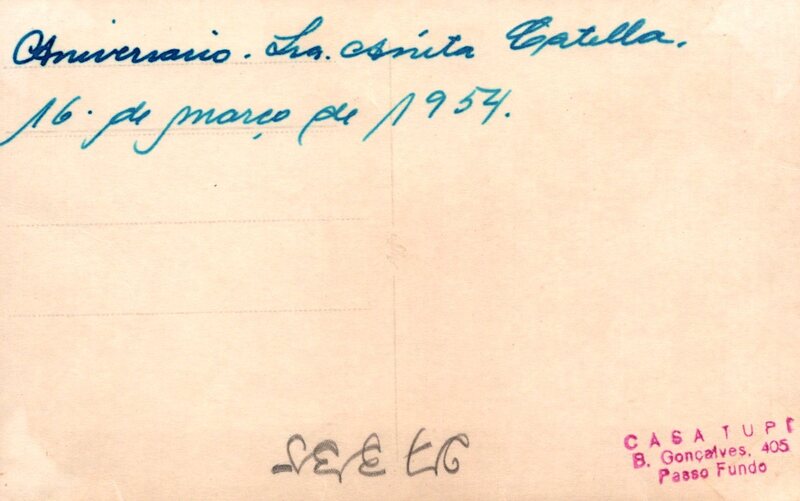 Aniversario. Sra. Anita Catella.
16. de março de 1954.
CASA TUPI
B. Gonçalves, 405
Passo Fundo